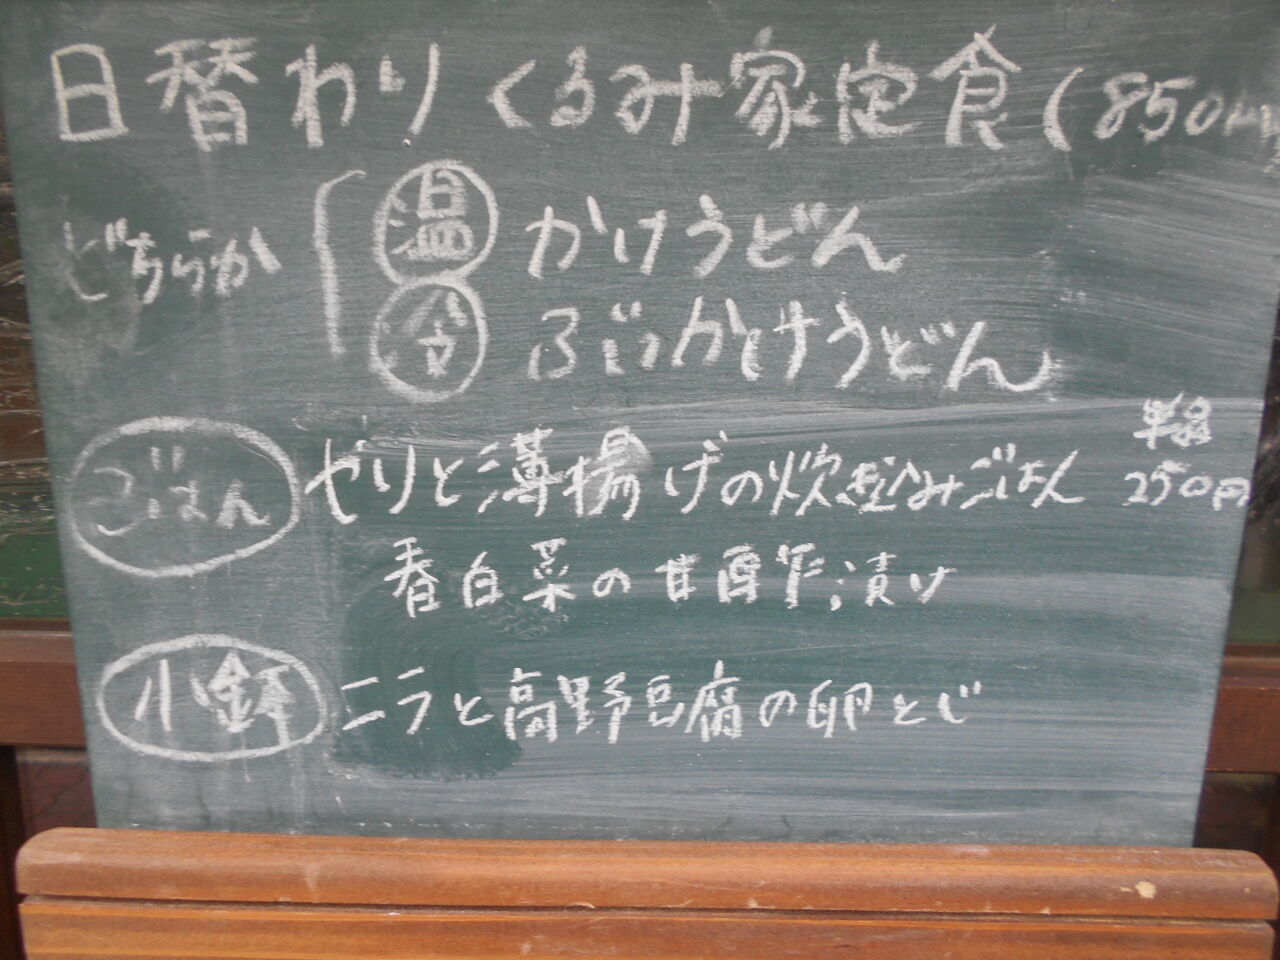 日替わりくるみ家定食(850円
どちらか
温 かけうどん
冷 ぶっかけうどん
ごはん セリと薄揚げの炊き込みごはん 単品 250円
春白菜の甘酢漬け
小鉢 ニラと高野豆腐の卵とじ